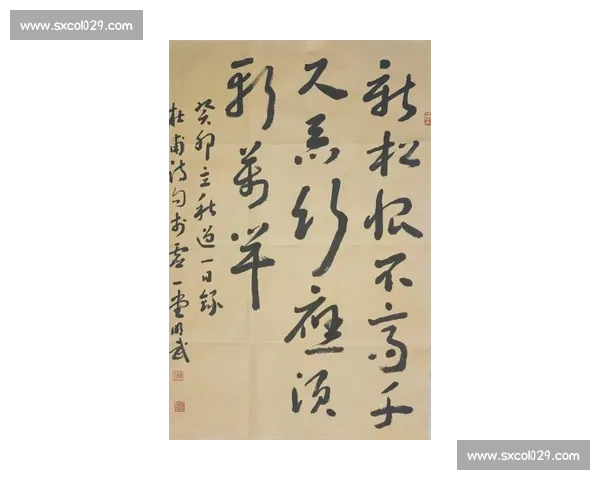 www.sxcol029.com
新松恨不高千
尺惡竹應須
斬萬竿
癸卯立秋過一日錄
杜甫詩句於虛一堂明武
www.sxcol029.com